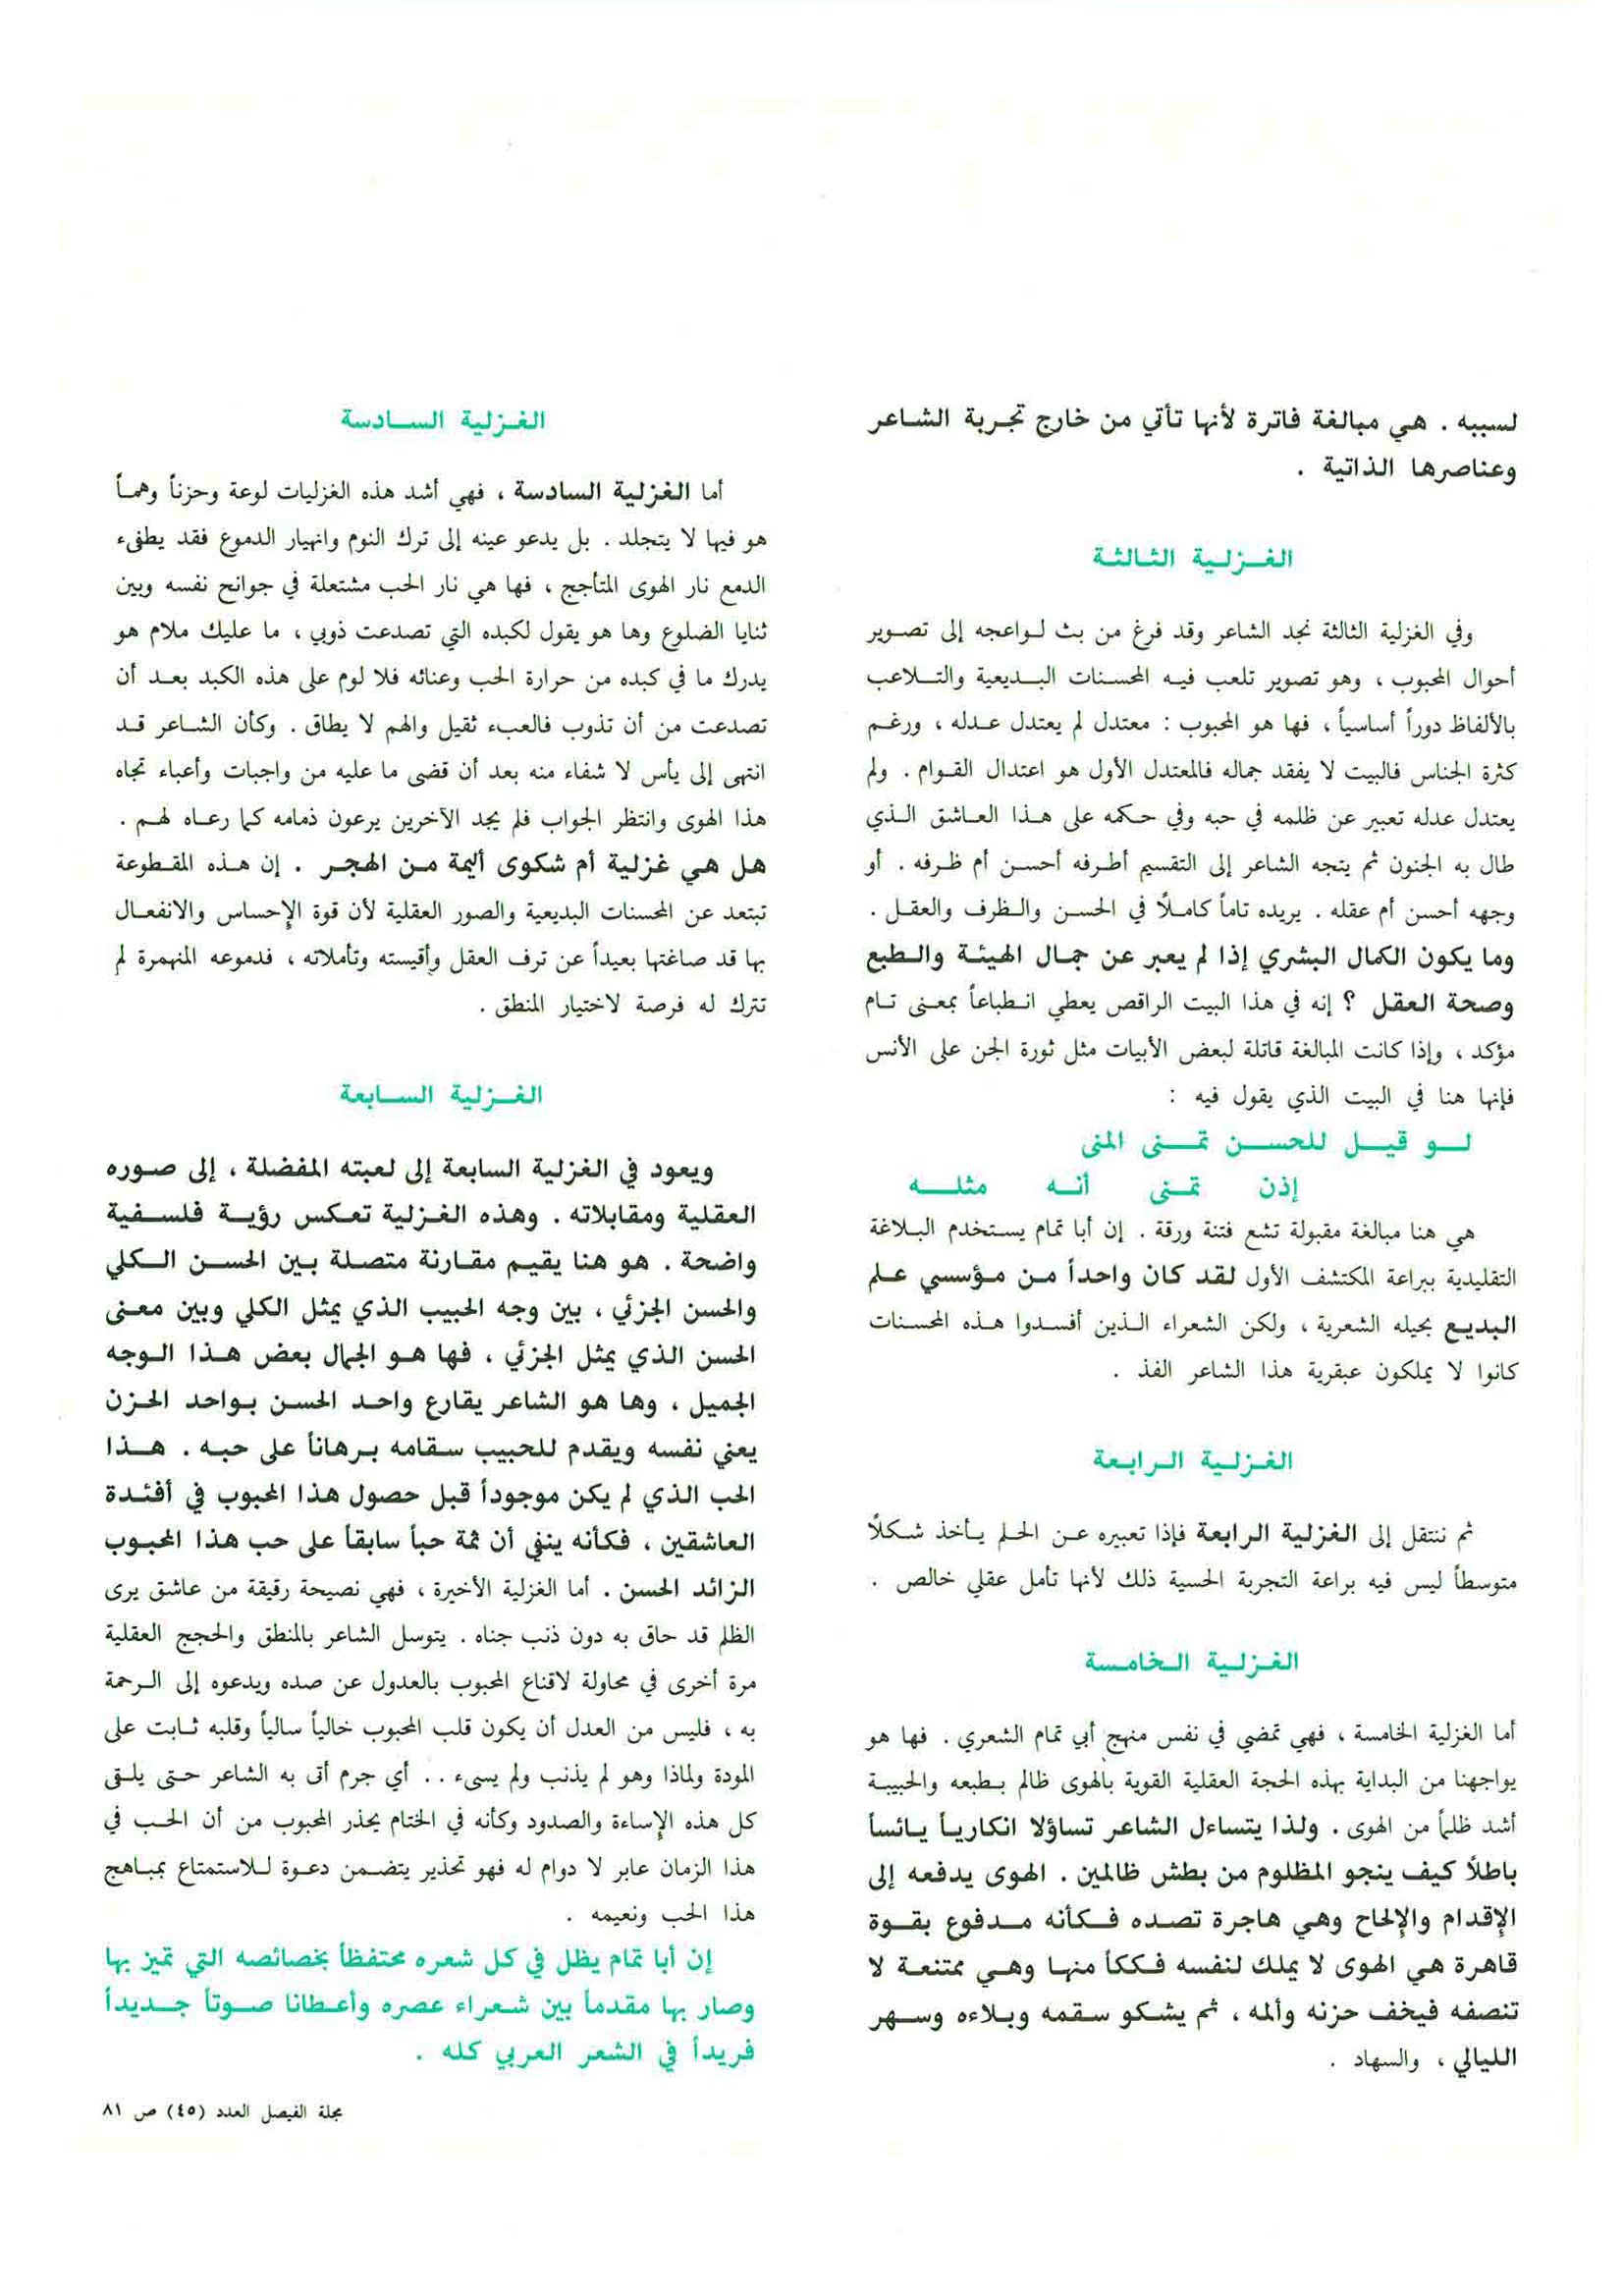 لسببه . هي مبالغة فاترة لأنها تأتي من خارج تجربة الشاعر
وعناصرها الذاتية .
الغزلية الثالثة
وفي الغزلية الثالثة نجد الشاعر وقد فرغ من بث لواعجه إلى تصوير
أحوال المحبوب ، وهو تصوير تلعب فيه المحسنات البديعية والتلاعب
بالألفاظ دوراً أساسياً ، فها هو المحبوب : معتدل لم يعتدل عدله ، ورغم
كثرة الجناس فالبيت لا يفقد جماله فالمعتدل الأول هو اعتدال القوام . ولم
يعتدل عدله تعبير عن ظلمه في حبه وفي حكمه على هذا العاشق الذي
طال به الجنون ثم يتجه الشاعر إلى التقسيم أطرفه أحسن أم ظرفه . أو
وجهه أحسن أم عقله . يريده تاماً كاملاً في الحسن والظرف والعقل .
وما يكون الكمال البشري إذا لم يعبر عن جمال الهيئة والطبع
وصحة العقل ؟ إنه في هذا البيت الراقص يعطي انطباعاً بمعنى تام
مؤكد ، وإذا كانت المبالغة قاتلة لبعض الأبيات مثل ثورة الجن على الأنس
فإنها هنا في البيت الذي يقول فيه :
لو قيل للحسن تمنى المنى
إذن تمنى أنه مثله
هي هنا مبالغة مقبولة تشع فتنة ورقة . إن أبا تمام يستخدم البلاغة
التقليدية ببراعة المكتشف الأول لقد كان واحداً من مؤسسي علم
البديع بحيله الشعرية ، ولكن الشعراء الذين أفسدوا هذه المحسنات
كانوا لا يملكون عبقرية هذا الشاعر الفذ .
الغزلية الرابعة
ثم ننتقل إلى الغزلية الرابعة فإذا تعبيره عن الحلم يأخذ شكلاً
متوسطاً ليس فيه براعة التجربة الحسية ذلك لأنها تأمل عقلي خالص .
الغزلية الخامسة
أما الغزلية الخامسة ، فهي تمضي في نفس منهج أبي تمام الشعري . فها هو
يواجهنا من البداية بهذه الحجة العقلية القوية بالهوى ظالم بطبعه والحبيبة
أشد ظلماً من الهوى . ولذا يتساءل الشاعر تساؤلا انكارياً يائساً
باطلاً كيف ينجو المظلوم من بطش ظالمين . الهوى يدفعه إلى
الإقدام والإلحاح وهي هاجرة تصده فكأنه مدفوع بقوة
قاهرة هي الهوى لا يملك لنفسه فككاً منها وهي ممتنعة لا
تنصفه فيخف حزنه وألمه ، ثم يشكو سقمه وبلاءه وسهر
الليالي ، والسهاد .
الغزلية السادسة
أما الغزلية السادسة ، فهي أشد هذه الغزليات لوعة وحزناً وهماً
هو فيها لا يتجلد . بل يدعو عينه إلى ترك النوم وانهيار الدموع فقد يطفىء
الدمع نار الهوى المتأجج ، فها هي نار الحب مشتعلة في جوانح نفسه وبين
ثنايا الضلوع وها هو يقول لكبده التي تصدعت ذوبي ، ما عليك ملام هو
يدرك ما في كبده من حرارة الحب وعنائه فلا لوم على هذه الكبد بعد أن
تصدعت من أن تذوب فالعبء ثقيل والهم لا يطاق . وكأن الشاعر قد
انتهى إلى يأس لا شفاء منه بعد أن قضى ما عليه من واجبات وأعباء تجاه
هذا الهوى وانتظر الجواب فلم يجد الآخرين يرعون ذمامه كما رعاه لهم .
هل هي غزلية أم شكوى أليمة من الهجر . إن هذه المقطوعة
تبتعد عن المحسنات البديعية والصور العقلية لأن قوة الإحساس والانفعال
بها قد صاغتها بعيداً عن ترف العقل وأقيسته وتأملاته ، فدموعه المنهمرة لم
تترك له فرصة لاختيار المنطق .
الغزلية السابعة
ويعود في الغزلية السابعة إلى لعبته المفضلة ، إلى صوره
العقلية ومقابلاته . وهذه الغزلية تعكس رؤية فلسفية
واضحة . هو هنا يقيم مقارنة متصلة بين الحسن الكلي
والحسن الجزئي ، بين وجه الحبيب الذي يمثل الكلي وبين معنى
الحسن الذي يمثل الجزئي ، فها هو الجمال بعض هذا الوجه
الجميل ، وها هو الشاعر يقارع واحد الحسن بواحد الحزن
يعني نفسه ويقدم للحبيب سقامه برهاناً على حبه . هذا
الحب الذي لم يكن موجوداً قبل حصول هذا المحبوب في أفئدة
العاشقين ، فكأنه ينفي أن ثمة حباً سابقاً على حب هذا المحبوب
الزائد الحسن . أما الغزلية الأخيرة ، فهي نصيحة رقيقة من عاشق يرى
الظلم قد حاق به دون ذنب جناه . يتوسل الشاعر بالمنطق والحجج العقلية
مرة أخرى في محاولة لاقناع المحبوب بالعدول عن صده ويدعوه إلى الرحمة
به ، فليس من العدل أن يكون قلب المحبوب خالياً سالياً وقلبه ثابت على
المودة ولماذا وهو لم يذنب ولم يسىء . . أي جرم أتى به الشاعر حتى يلقى
كل هذه الإساءة والصدود وكأنه في الختام يحذر المحبوب من أن الحب في
هذا الزمان عابر لا دوام له فهو تحذير يتضمن دعوة للاستمتاع بمباهج
هذا الحب ونعيمه .
إن أبا تمام يظل في كل شعره محتفظاً بخصائصه التي تميز بها
وصار بها مقدماً بين شعراء عصره وأعطانا صوتاً جديداً
فريداً في الشعر العربي كله .
مجلة الفيصل العدد (٤٥) ص ٨١